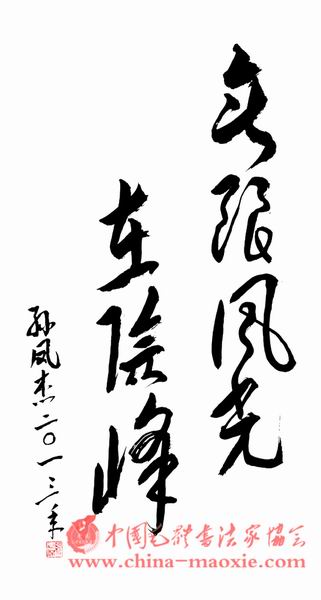 无限风光
在險峰
孙凤杰二〇一三年
中国毛體书法家協会
www.china-maoxie.com